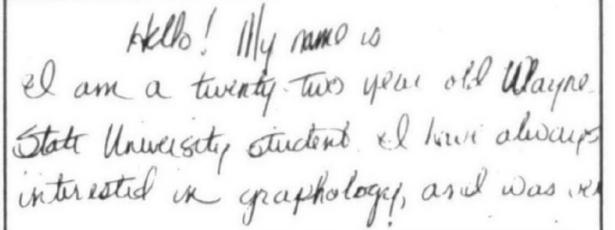 Hello! My name is
I am a twenty-two year old Wayne
State University student. I have always
interested in graphology, and was